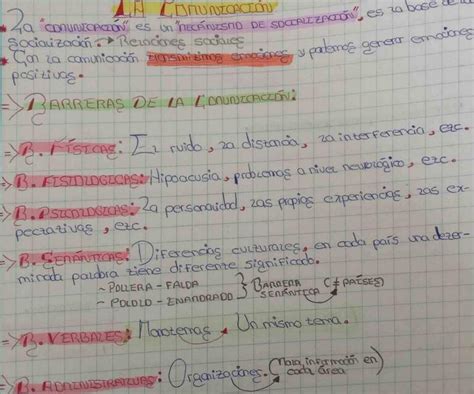 LA COMUNICACIÓN
• La "COMUNICACIÓN" es un "MECANISMO DE SOCIALIZACIÓN", es la base de la
socialización. → Relaciones sociales
• Con la comunicación transmitimos emociones y podemos generar emociones
positivas.
=> BARRERAS DE LA COMUNICACIÓN:
=> B. FÍSICAS: El ruido, la distancia, la interferencia, etc.
=> B. FISIOLOGICAS: Hipoacusia, problemas a nivel neurológico, etc.
=> B. PSICOLOGICAS: La personalidad, las propias experiencias, las ex-
pectativas, etc.
=> B. SEMÁNTICAS: Diferencias culturales, en cada país una deter-
minada palabra tiene diferente significado.
~ POLLERA - FALDA } BARRERA (≠ PAÍSES)
~ POLOLO - ENAMORADO SEMÁNTICA
=> B. VERBALES: Monotemas. Un mismo tema.
=> B. ADMINISTRATIVAS: Organizaciones. (Mala información en
cada área)